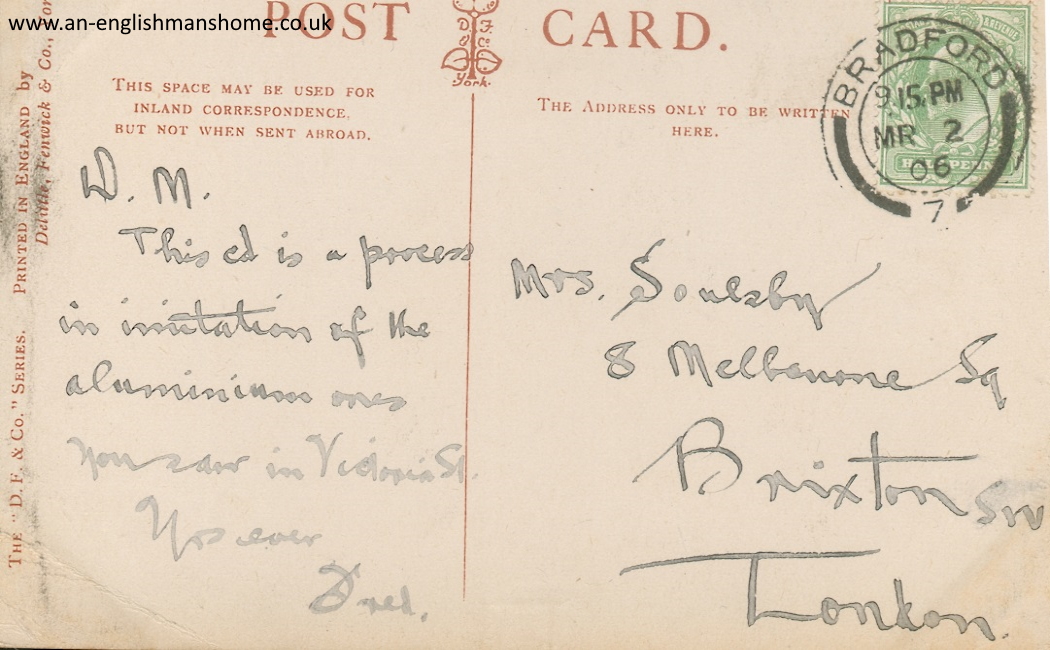 www.an-englishmanshome.co.uk
POST CARD.
D. F. & C.
York.
THIS SPACE MAY BE USED FOR
INLAND CORRESPONDENCE,
BUT NOT WHEN SENT ABROAD.
THE ADDRESS ONLY TO BE WRITTEN
HERE.
BRADFORD
9.15.PM
MR 2
06
7
THE "D. F. & Co." SERIES. PRINTED IN ENGLAND by
Fenwick & Co.,
D. M.
This cd is a process
in imitation of the
aluminium ones
you saw in Victoria St.
Yrs ever
Fred.
Mrs. Soulsby
8 Melbourne Sq
Brixton SW
London.